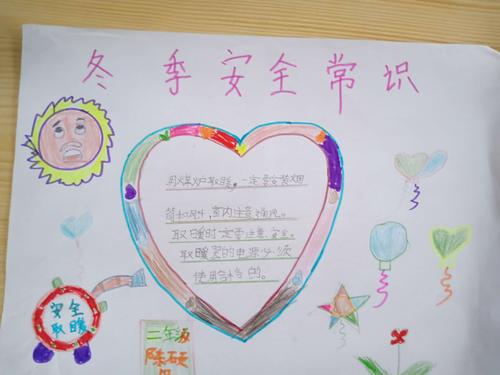 冬季安全常识
用煤炉取暖。一定要安装烟
筒和风斗,室内注意通风。
取暖时一定要注意安全。
取暖器的电源必须
使用合格的。
安全
取暖
二年级
陈硕